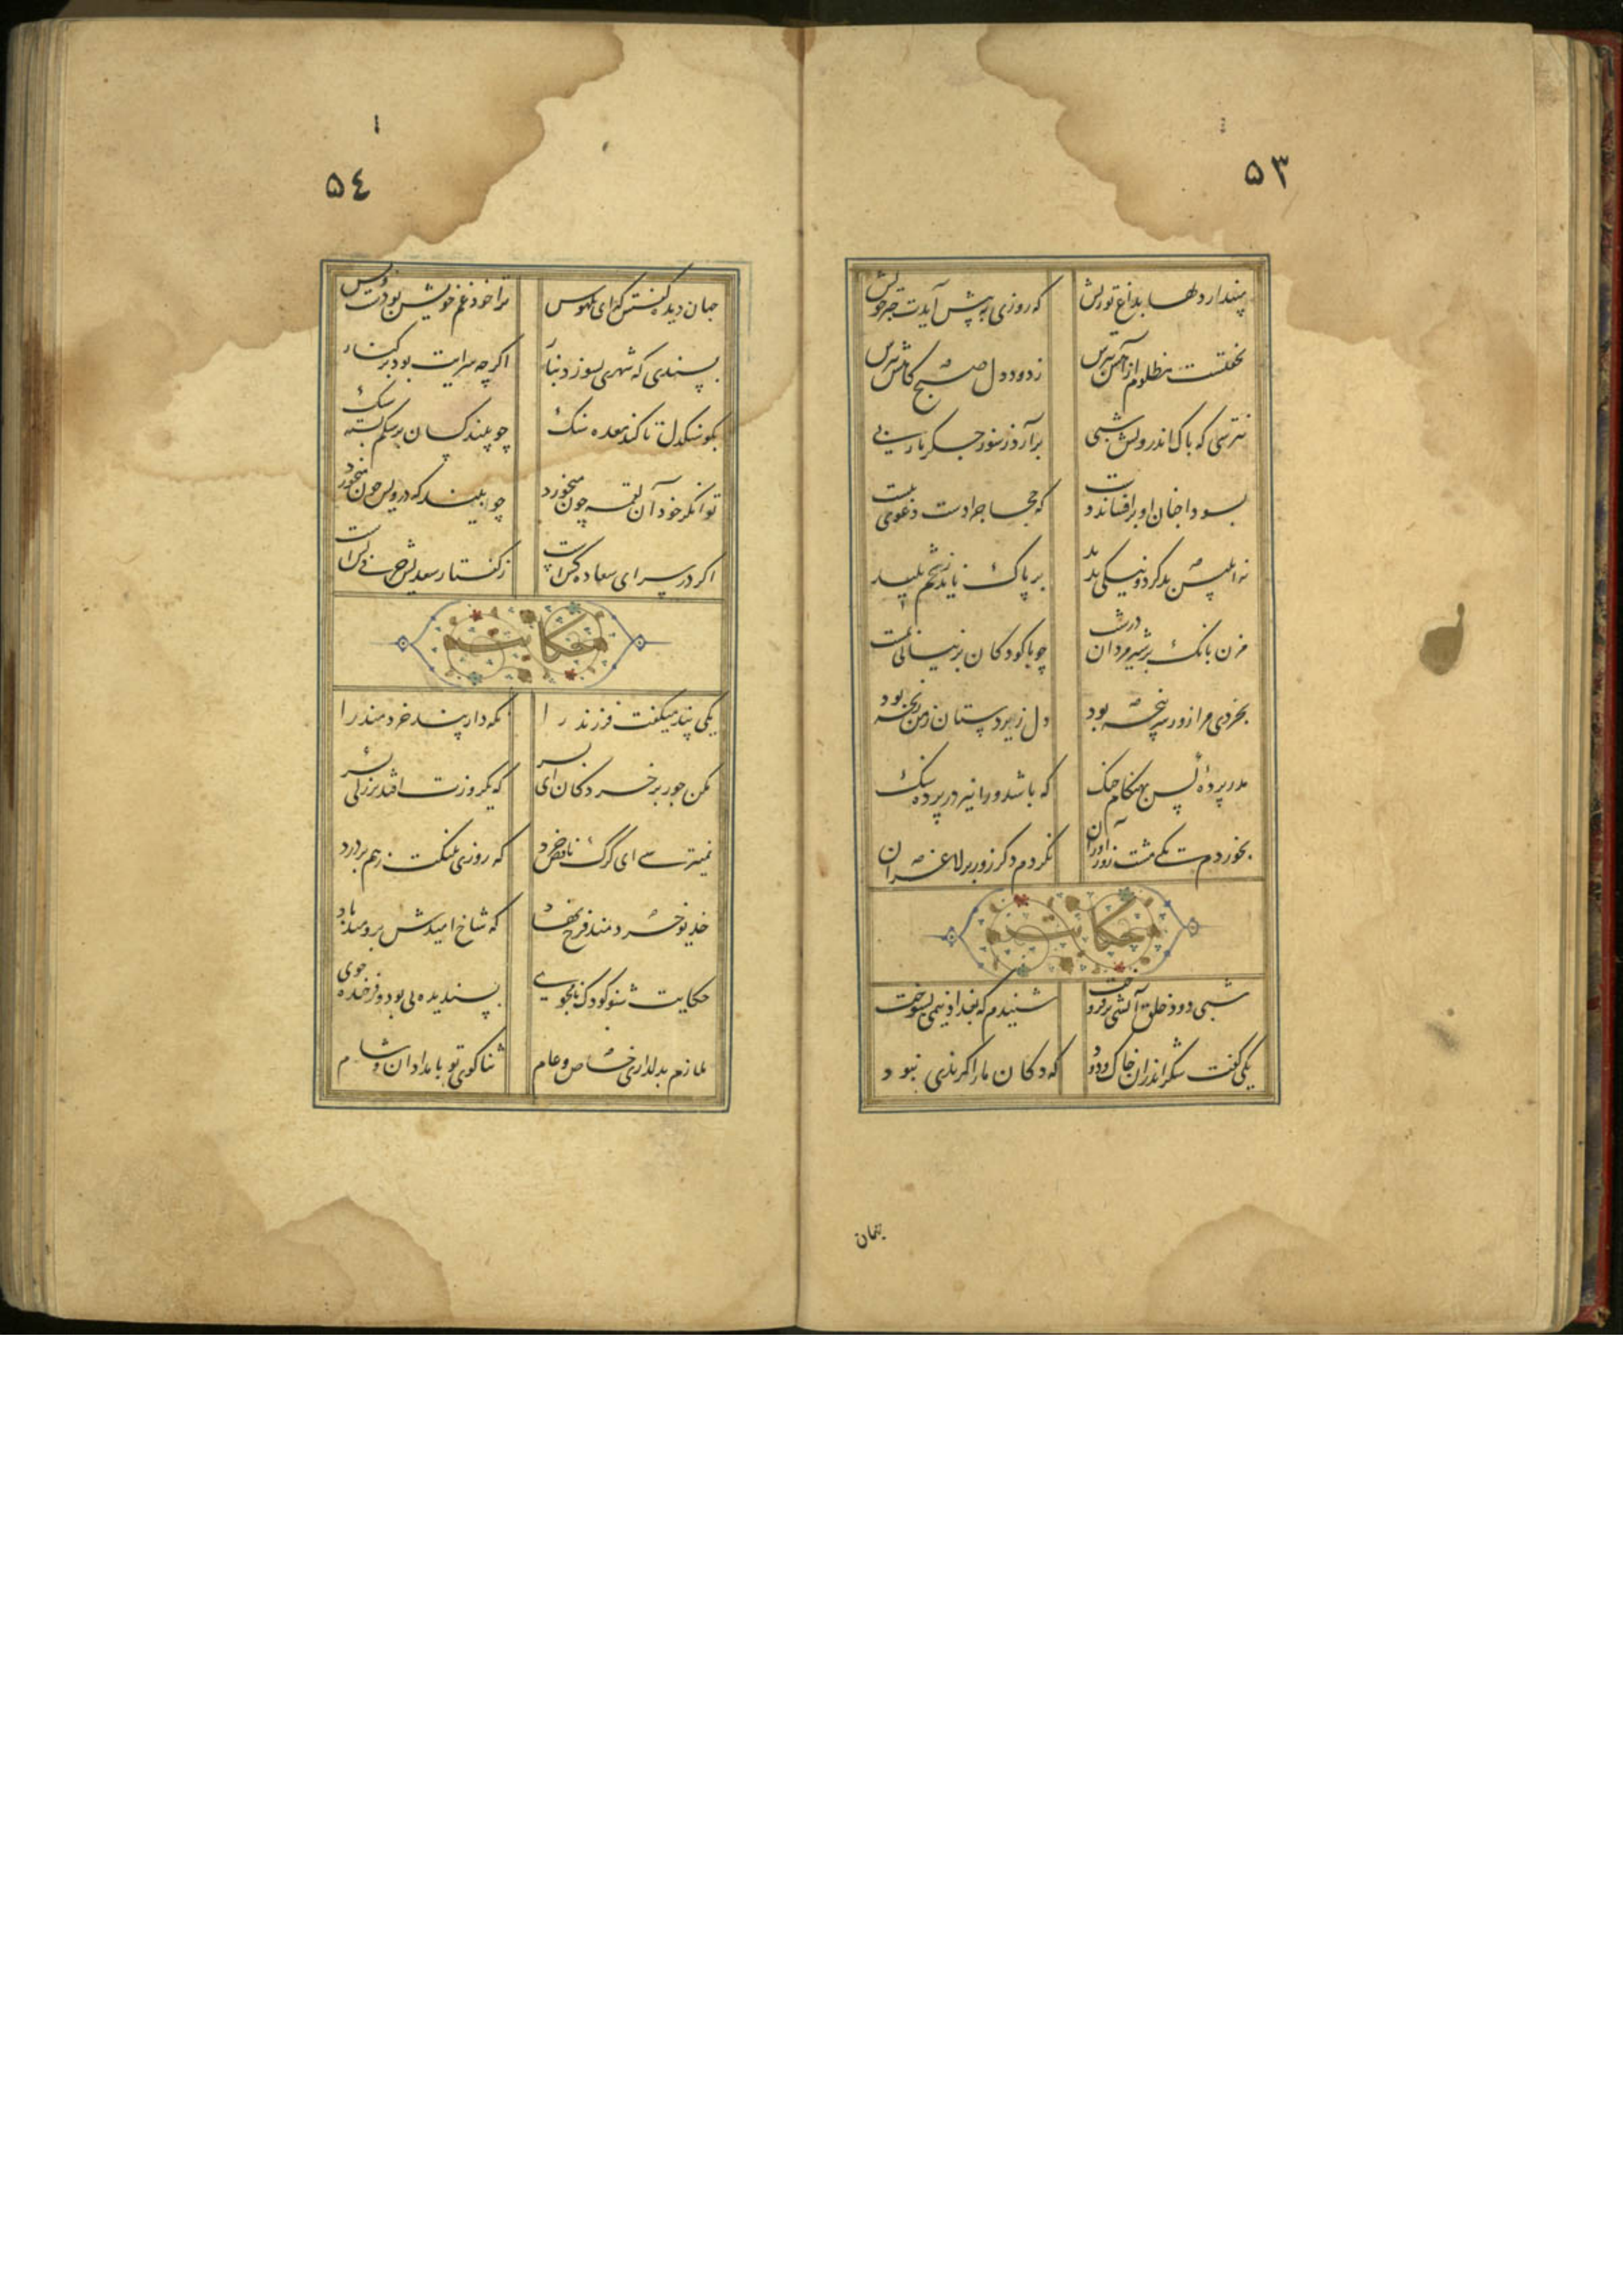 ۵۳
مپندار دلها بداغ تو ریش که روزی به پیش آیدت جبر خویش
نخفتست مظلوم از آهش بترس ز دود دل صبح گاهش بترس
نترسی که پاک اندرونش شبی برآرد ز سوز جگر یاربی
که حجاج را دست دعویست
نه ابلیس بد کرد و نیکی ندید بر پاک ناید ز تخم پلید
مزن بانگ بر شیرمردان درشت چو با کودکان بر نیایی بمشت
بخردی مرا زور سرپنجه بود دل زیردستان ز من رنجه بود
مدر پرده کس بهنگام جنگ که باشد ورا نیز در پرده ننگ
بخوردم یکی مشت زورآوران نکردم دگر زور بر لاغران
حکایت
شبی دود خلق آتشی برفروخت شنیدم که بغداد نیمی بسوخت
یکی گفت شکر اندران خاک و دود که دکان ما را گزندی نبود
۵٤
جهان دیده گفتش که ای بلهوس ترا خود غم خویشتن بود و بس
پسندی که شهری بسوزد بنار اگر چه سرایت بود بر کنار
بجز سنگدل تا کند معده تنگ چو بیند کسان بر شکم بسته سنگ
توانگر خود آن لقمه چون میخورد چو بیند که درویش خون میخورد
اگر در سرای سعادت کس است ز گفتار سعدیش حرفی بس است
حکایت
یکی پند میگفت فرزند را نگه دار پند خردمند را
مکن جور بر خردکان ای پسر که یکروزت افتد بزرگی بسر
نمیترسی ای گرگ ناقص خرد که روزی پلنگت ز هم بر درد
خدیو خردمند فرخ نهاد که شاخ امیدش برومند باد
حکایت شنو کودک نامجوی پسندیده پی بود و فرخنده خوی
ملازم بدلداری خاص و عام ثناگوی تو بامدادان و شام